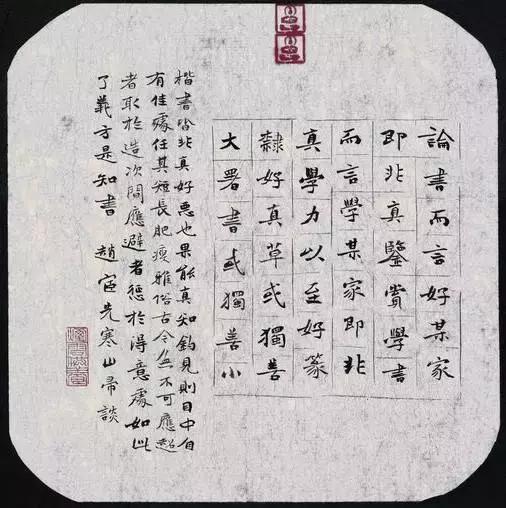 論書而言好某家
即非真鑒賞學書
而言學某家即非
真學力以至好篆
隸好真草或獨善
大署書或獨善小
楷書皆非真好惡也果能真知鈞見則目中自
有佳處任其短長肥瘦雅俗古今無不可應趨
者取於造次間應避者懲於得意處如此
了義方是知書 趙宦光寒山帚談